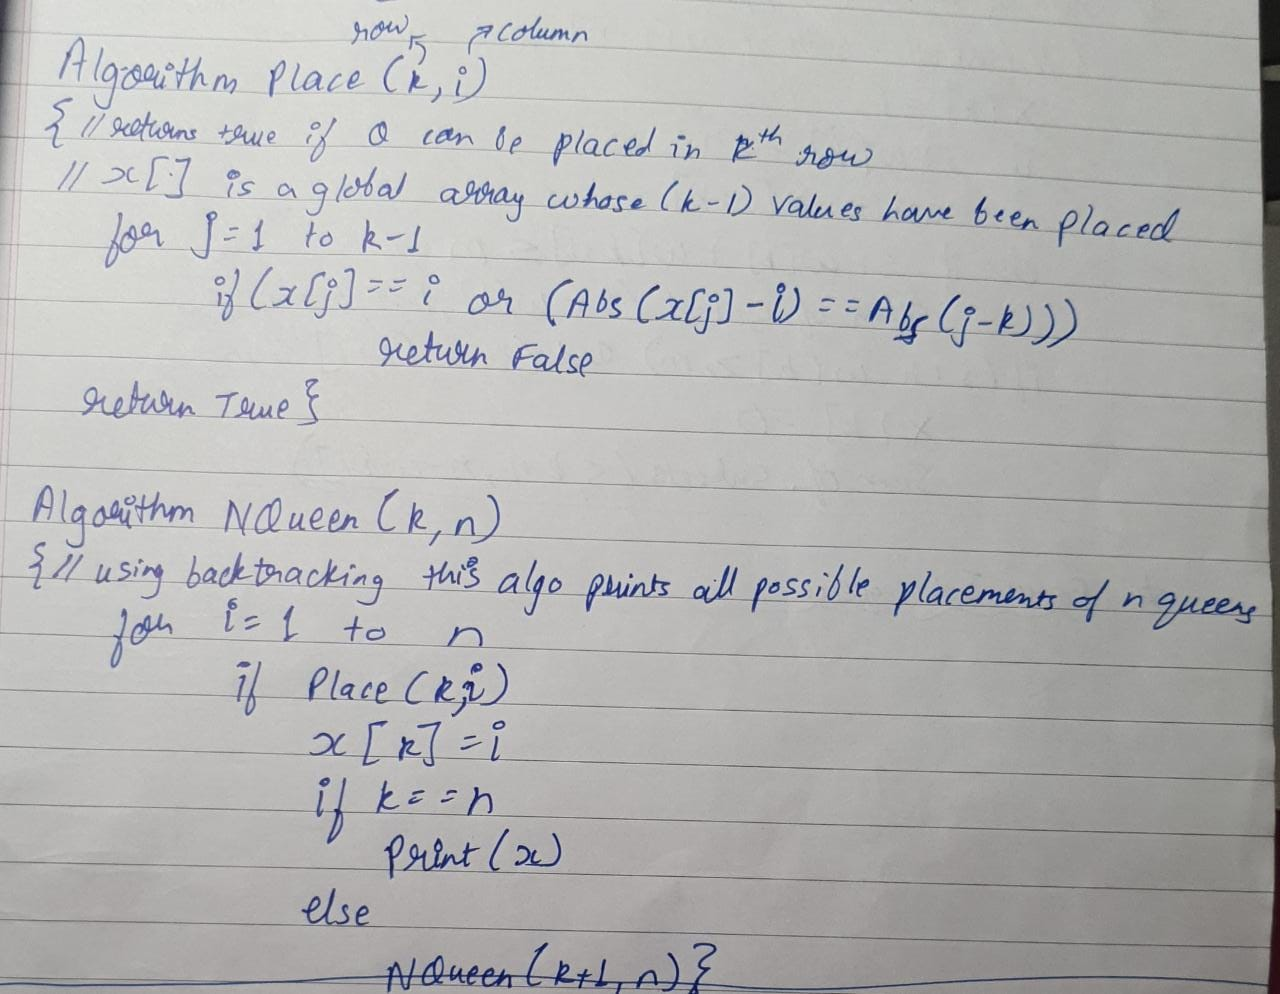 row ↗column
Algorithm Place (k, i)
{ // returns true if Q can be placed in kth row
// x[.] is a global array whose (k-1) values have been placed
for j=1 to k-1
if (x[j] == i or (Abs (x[j] - i) == Abs (j-k)))
return False
return True }
Algorithm NQueen (k, n)
{ // using backtracking this algo prints all possible placements of n queens
for i=1 to n
if Place (k,i)
x[k] = i
if k==n
print (x)
else
NQueen (k+1, n) }